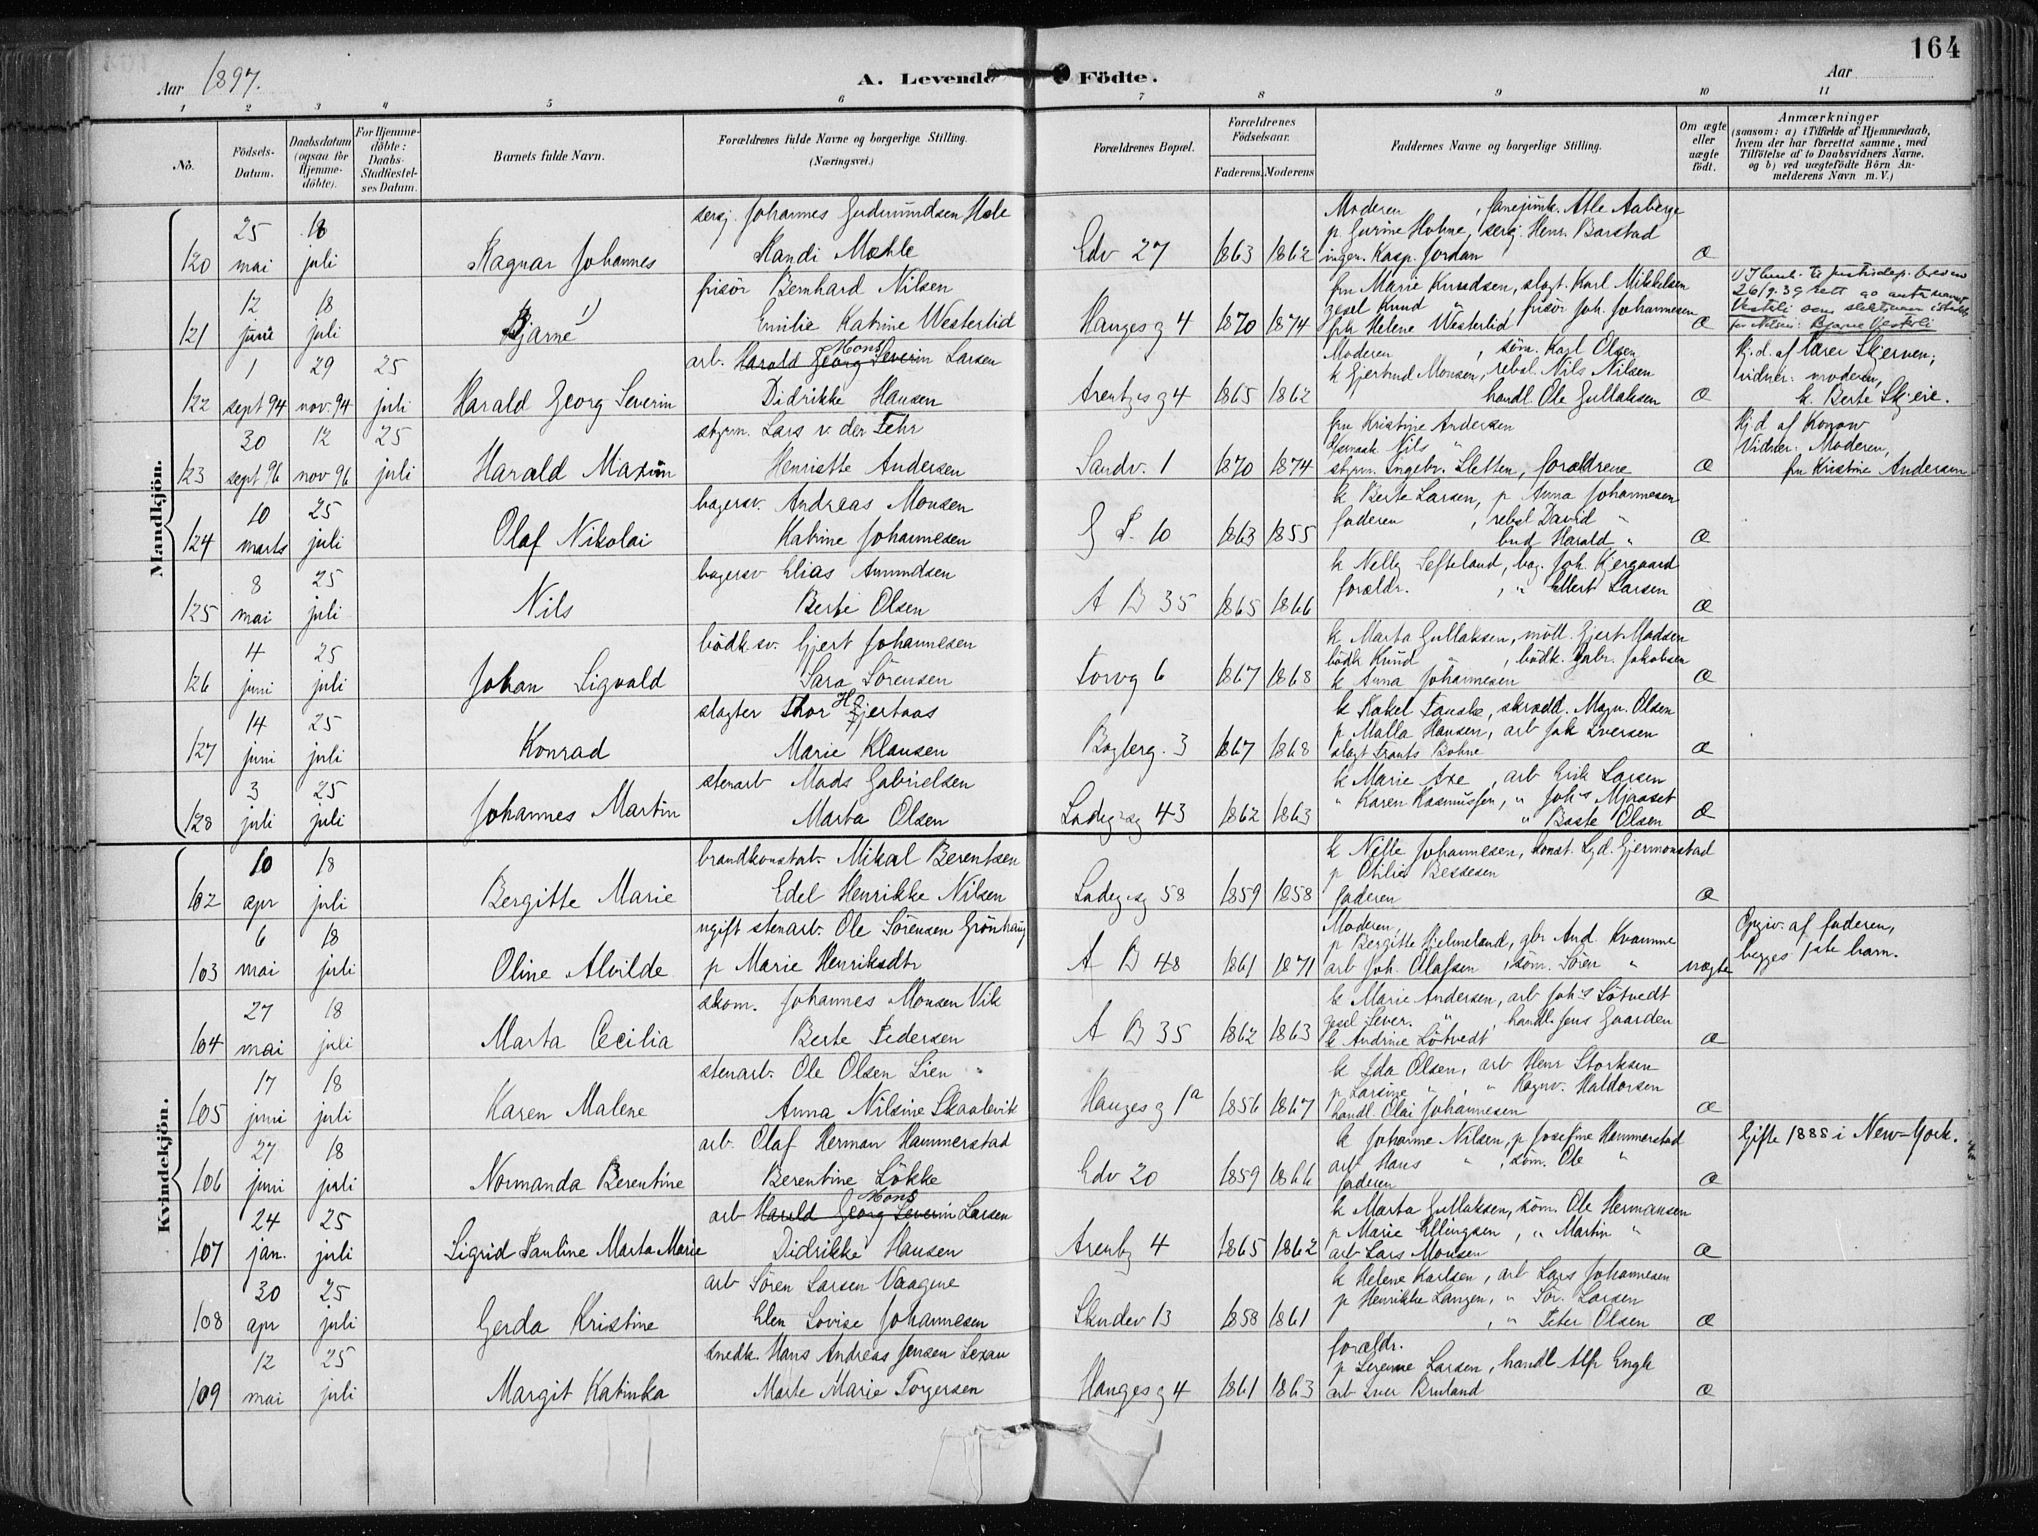 164
Aar 1897.
A. Levende Födte.
Aar
1 2 3 4 5 6 7 8 9 10 11
No.
Födsels-Datum.
Daabsdatum (ogsaa for Hjemme-döbte).
For Hjemme-döbte: Daabs-Stadfæstel-ses Datum.
Barnets fulde Navn.
Forældrenes fulde Navne og borgerlige Stilling. (Næringsvei.)
Forældrenes Bopæl.
Forældrenes Födselsaar.
Faderens. Moderens
Faddernes Navne og borgerlige Stilling.
Om ægte eller uægte født.
Anmærkninger
(saasom: a) i Tilfælde af Hjemmedaab, hvem der har forrettet samme, med Tilföielse af to Daabsvidners Navne, og b) ved uegtefödte Börn An-melderens Navn m. V.)
Mandkjön.
120 25 mai 18 juli Ragnar Johannes
sersj. Johannes Gudmundsen Hole
Randi Mæhle
Edv 27 1863 1862
Moderen, fanejunk. Atle Aaberge
p. Gurine Hohne, sersj. Henr. Barstad
ingen. Kasp. Jordan
æ
121 12 juni 18 juli Bjarne 1)
frisör Bernhard Nilsen
Emilie Katrine Westerlid
Hauges g 4 1870 1874
fru Marie Knudsen, slagt. Karl Mikkelsen
gesel Knud ", frisör Joh. Johannesen
frk Helene Westerlid
æ
26/9.39 rett
Vestli som slektsnavn istedet
for Nilsen: Bjarne Vestli
122 1 sept 94 29 nov. 94 25 juli Harald Georg Severin
arb. Harald Georg Severin Mons Larsen
Didrikke Hansen
Arentzes g 4 1865 1862
Moderen, söm. Karl Olsen
k Gjertrud Monsen, rebsl. Nils Nilsen
handl. Ole Gullaksen
æ
Hj.d. af Skjerven;
vidner: moderen,
k. Berte Skjeie.
123 30 sept 96 12 nov 96 25 juli Harald Maxim
styrm. Lars v. der Fehr
Henriette Andersen
Sandv. 1 1870 1874
fru Kristine Andersen
Nils "
styrm. Ingebr. Sletten, forældrene
æ
Hj.d af Konow
Vidner: Moderen,
fru Kristine Andersen
124 10 marts 25 juli Olaf Nikolai
bagersv. Andreas Monsen
Katrine Johannesen
G P. 10 1863 1855
k Berte Larsen, p Anna Johannesen
faderen, rebsl David "
bud Harald "
æ
125 8 mai 25 juli Nils
bagersv Elias Amundsen
Berte Olsen
A B 35 1865 1866
k Nelly Lefteland, bag. Joh. Kjergaard
forældr., " Ellert Larsen
æ
126 4 juni 25 juli Johan Sigvald
bödksv. Gjert Johannesen
Sara Sörensen
Torvg 6 1867 1868
k Marta Gullaksen, möll. Gjert Madsen
bödk Knud ", bödk. Gabr. Jakobsen
k Anna Johannesen
æ
127 14 juni 25 juli Konrad
slagter Thor Hjertaas
Marie Klausen
Bagberg. 3 1867 1868
k Rakel Fauske, skrædd. Magn. Olsen
p Malla Hansen, arb Jak Iversen
slagt Frants Bohne
æ
128 3 juli 25 juli Johannes Martin
stenarb Mads Gabrielsen
Marta Olsen
Ladegsg 43 1862 1863
k Marie Axe, arb Erik Larsen
" Karen Rasmussen, " Johs Mjaaset
" Baste Olsen
æ
Kvindekjön.
102 10 apr 18 juli Bergitte Marie
brandkonstab. Mikal Berentsen
Edel Henrikke Nilsen
Ladegsg 58 1859 1858
k Nille Johannesen, konst. Lyd. Gjermonstad
p Otilie Bessesen
faderen
æ
103 6 mai 18 juli Oline Alvilde
ugift stenarb. Ole Sörensen Grönhaug
p Marie Henriksdtr
A B 48 1861 1871
Moderen,
p Bergitte Hjelmeland, gbr And. Kvamme
arb Joh. Olafsen, söm. Sören "
uægte
Opgiv. af faderen,
begges 1ste barn.
104 27 mai 18 juli Marta Cecilia
skom. Johannes Monsen Vik
Berte Pedersen
A B 35 1862 1863
k Marie Andersen, arb Johs Lötvedt
gesel Sever. ", handl. Jens Gaarden
k Andrine Lötvedt
æ
105 17 juni 18 juli Karen Malene
stenarb. Ole Olsen Lien
Anna Nilsine Skaalevik
Hauges g 1a 1856 1867
k Ida Olsen, arb Henr Storksen
p Larsine ", " Ragnv. Haldorsen
handl. Olai Johannesen
æ
106 27 juni 18 juli Normanda Berentine
arb. Olaf Herman Hammerstad
Berentine Lökke
Edv 20 1859 1866
k Johanne Nilsen, p Josefine Hammerstad
arb Hans ", söm. Ole "
faderen
æ
Gifte 1888 i New-York.
107 24 jan. 25 juli Sigrid Pauline Marta Marie
arb Harald Georg Severin Mons Larsen
Didrikke Hansen
Arentzg 4 1865 1862
k Marta Gullaksen, söm. Ole Hermansen
p Marie Ellingsen, " Martin "
arb Lars Monsen
æ
108 30 apr 25 juli Gerda Kristine
arb Sören Larsen Vaagene
Elen Lovise Johannesen
Skudev 13 1858 1861
k Helene Karlsen, arb Lars Johannesen
p Henrikke Langen, " Sör. Larsen
, " Peter Olsen
æ
109 12 mai 25 juli Margit Katinka
snedk. Hans Andreas Jensen Lexau
Marte Marie Torgersen
Hauges g 4 1861 1863
forældr.
p Serene Larsen, handl Alf Engh
arb Iver Bruland
æ